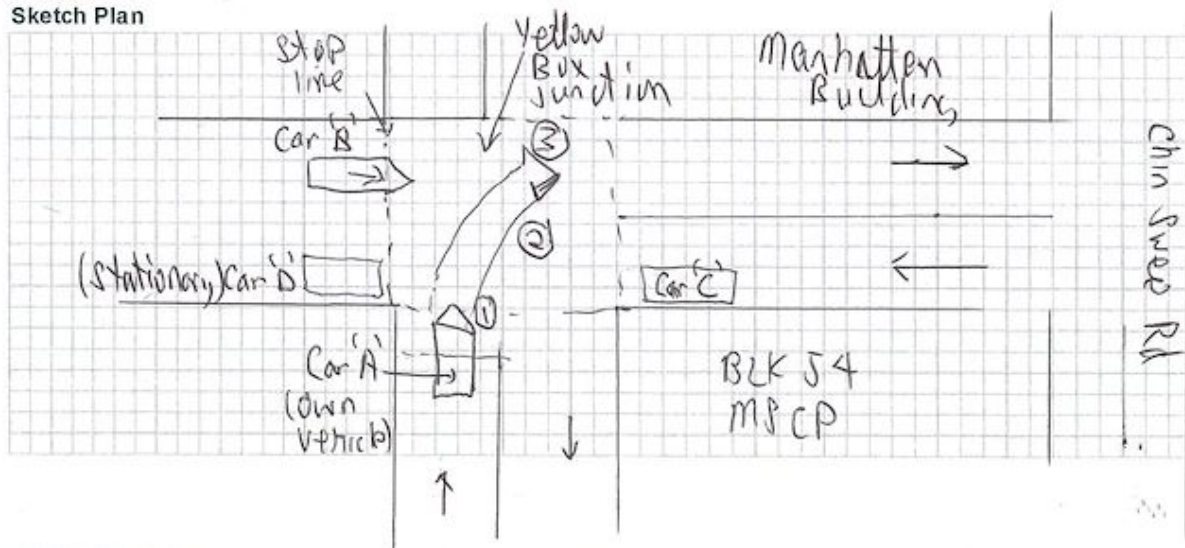 Sketch Plan
Stop
line
Yellow
Box
Junction
Manhatten
Building
Car 'B'
3
2
(Stationary) Car 'D'
1
Car 'C'
Chin Swee Rd
Car 'A'
(own
vehicle)
BLK 54
MSCP